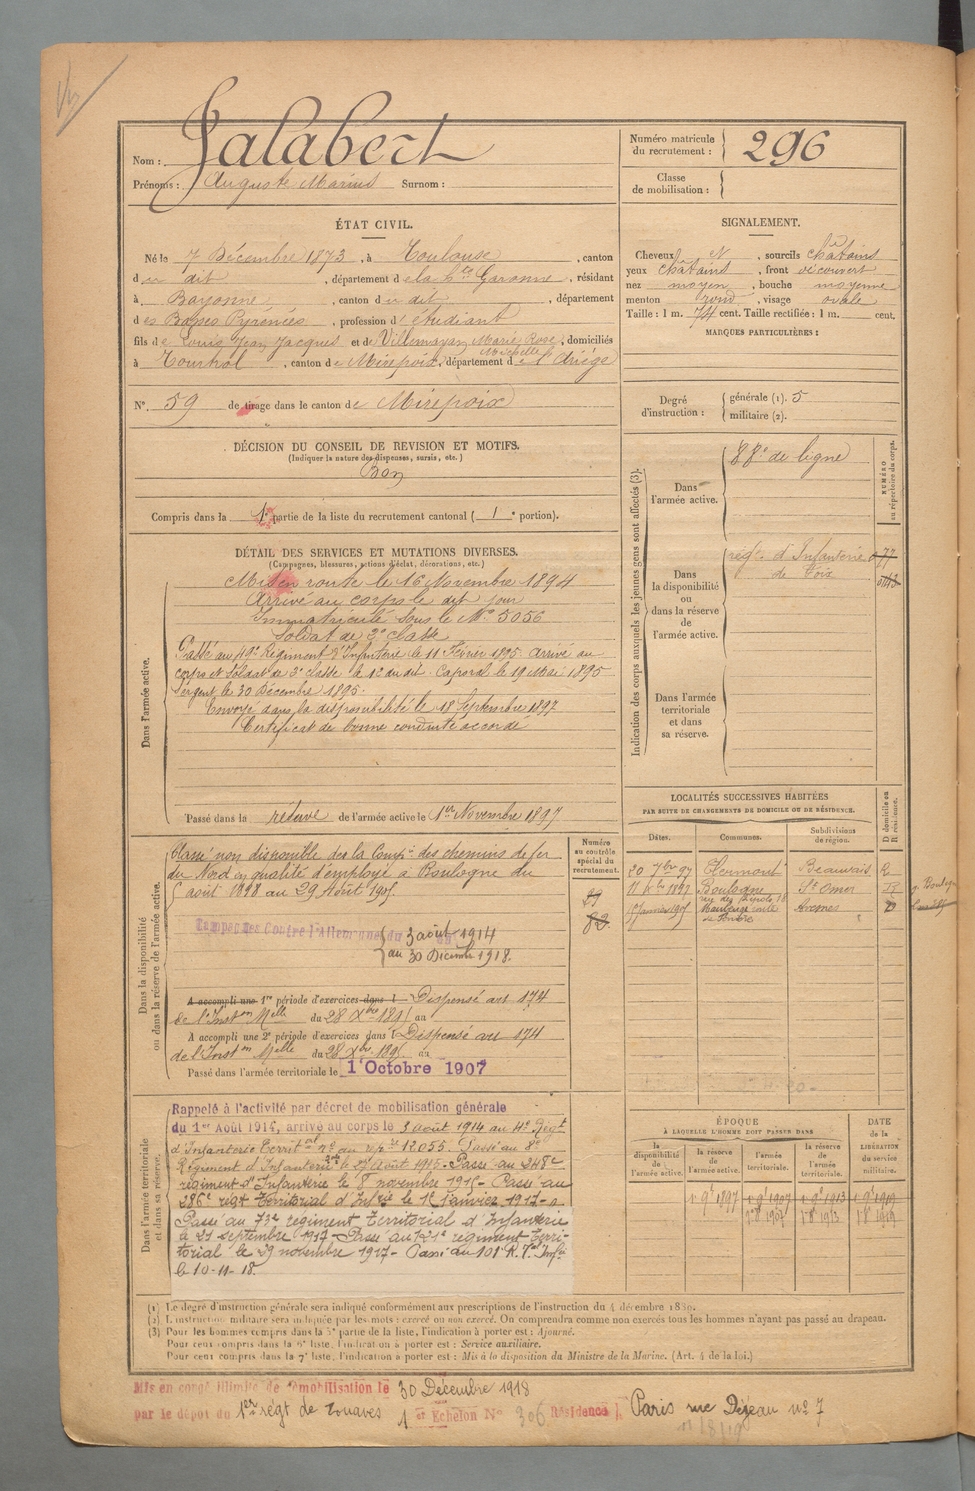 Nom : Jalabert
Prénoms : Auguste Marius Surnom :
Numéro matricule du recrutement : 296
Classe de mobilisation :
ÉTAT CIVIL.
Né le 7 Décembre 1873, à Toulouse, canton
du dit, département de la Hte Garonne, résidant
à Bayonne, canton du dit, département
des Basses Pyrénées, profession d'étudiant
fils de Louis Jean Jacques et de Marie Rose, domiciliés
à Tourtrol, canton de Mirepoix, département de l'Ariège
N°. 59 de tirage dans le canton de Mirepoix
DÉCISION DU CONSEIL DE REVISION ET MOTIFS.
(Indiquer la nature des dispenses, sursis, etc.)
Bon
Compris dans la 1e partie de la liste du recrutement cantonal (1e portion).
SIGNALEMENT.
Cheveux et, sourcils châtains
yeux châtains, front découvert
nez moyen, bouche moyenne
menton rond, visage ovale
Taille : 1 m. 74 cent. Taille rectifiée : 1 m. cent.
MARQUES PARTICULIÈRES :
Degré d'instruction : générale (1). 5
militaire (2).
DÉTAIL DES SERVICES ET MUTATIONS DIVERSES.
(Campagnes, blessures, actions d'éclat, décorations, etc.)
Dans l'armée active.
Mis en route le 16 Novembre 1894
Arrivé au corps le dit jour
Immatriculé sous le N° 5056
Soldat de 2e classe
Passé au 49e Régiment d'Infanterie le 11 Février 1895. Arrivé au
corps et soldat de 2e classe le 12 du dit. Caporal le 19 Mai 1895
Sergent le 30 Décembre 1895.
Envoyé dans la disponibilité le 18 Septembre 1897
Certificat de bonne conduite accordé
Passé dans la réserve de l'armée active le 1er Novembre 1897
Indication des corps auxquels les jeunes gens sont affectés (3).
NUMÉRO au répertoire du corps.
Dans l'armée active.
88e de ligne
Dans la disponibilité ou dans la réserve de l'armée active.
régt. d'Infanterie
de Foix
Dans l'armée territoriale et dans sa réserve.
Dans la disponibilité ou dans la réserve de l'armée active.
Classé non disponible de la Compie. des chemins de fer
du Nord en qualité d'employé à Boulogne du
5 août 1898 au 29 Août 1905
Numéro au contrôle spécial du recrutement.
Campagnes Contre l'Allemagne du 3 août 1914
au 30 Décembre 1918.
A accompli une 1re période d'exercices dans l Dispensé art 174
de l'Inston Melle du 28 Xbre 1895 au
A accompli une 2e période d'exercices dans l Dispensé art 174
de l'Inston Melle du 28 Xbre 1895 au
Passé dans l'armée territoriale le 1 Octobre 1907
LOCALITÉS SUCCESSIVES HABITÉES
PAR SUITE DE CHANGEMENTS DE DOMICILE OU DE RÉSIDENCE.
Dates. Communes. Subdivisions de région. D domicile ou R résidence.
20 7bre 97 Clermont Beauvais R
Boulogne St Omer
15 Janvier 1905 Avesnes
Dans l'armée territoriale et dans sa réserve.
Rappelé à l'activité par décret de mobilisation générale
du 1er Août 1914, arrivé au corps le 3 août 1914 au 4e Régt
d'Infanterie Territal 12055. Passé au 8e
Régiment d'Infanterie le août 1915. Passé au 348e
régiment d'Infanterie le 8 novembre 1915. Passé au
286e régt Territorial d'Infrie le 1er Janvier 1917
Passé au 73e régiment Territorial d'Infanterie
le 21 septembre 1917. Passé au 121e régiment Terri-
torial le 29 novembre 1917 - Passé au 101 R.T. Infie
le 10-11-18.
ÉPOQUE
À LAQUELLE L'HOMME DOIT PASSER DANS
la disponibilité de l'armée active. la réserve de l'armée active. l'armée territoriale. la réserve de l'armée territoriale.
DATE de la LIBÉRATION du service militaire.
1r 9bre 1897 1r 9bre 1907 1r 9bre 1913 1r 9bre 1919
1r 8bre 1907 1r 8bre 1913 1r 8bre 1919
(1) Le degré d'instruction générale sera indiqué conformément aux prescriptions de l'instruction du 4 décembre 1889.
(2) L'instruction militaire sera indiquée par les mots : exercé ou non exercé. On comprendra comme non exercés tous les hommes n'ayant pas passé au drapeau.
(3) Pour les hommes compris dans la 5e partie de la liste, l'indication à porter est : Ajourné.
Pour ceux compris dans la 6e liste, l'indication à porter est : Service auxiliaire.
Pour ceux compris dans la 7e liste, l'indication à porter est : Mis à la disposition du Ministre de la Marine. (Art. 4 de la loi.)
Mis en congé illimité de démobilisation le 30 Décembre 1918
par le dépôt du 1er régt de zouaves 1er Echelon N° 306 Résidence Paris rue Dejean n° 7